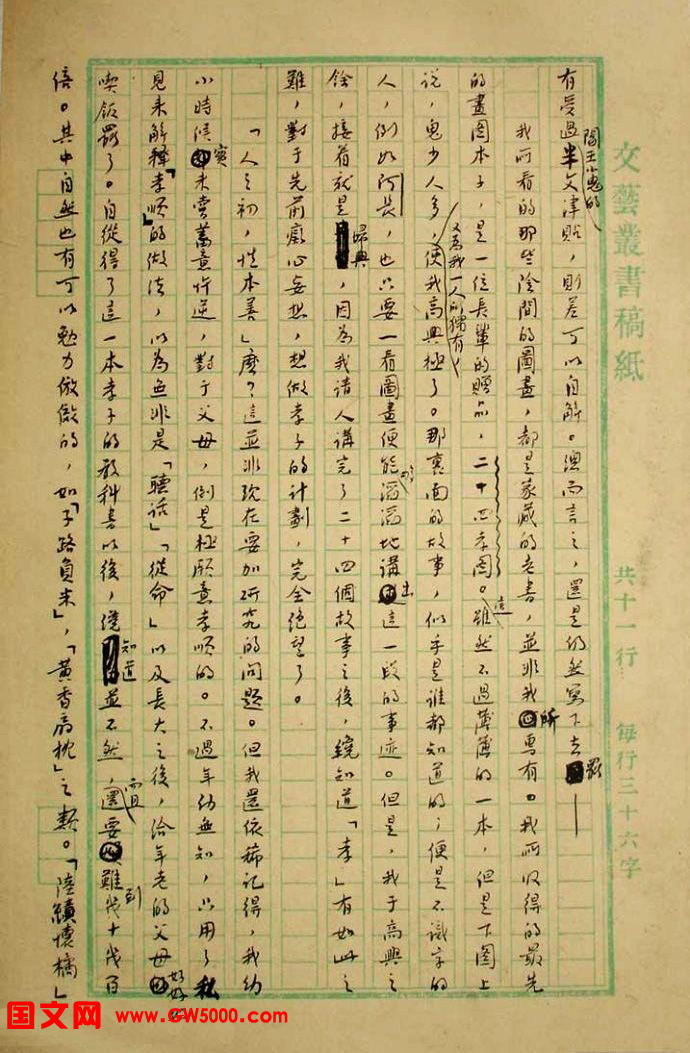 文藝叢書稿紙 共十一行 每行三十六字
有受過閻王冤的半文津貼，則差可以自解。總而言之，還是仍然寫下去罷——
我所看的那些陰間的圖畫，都是家藏的老書，並非我所專有。我所收得的最先
的畫圖本子，是一位長輩的贈品，二十四孝圖。這雖然不過薄薄的一本，但是下圖上
说，鬼少人多，又為我一人所獨有，使我高興極了。那裏面的故事，似乎是誰都知道的；便是不識字的
人，例如阿長，也只要一看圖畫便能夠滔滔地講出這一段的事迹。但是，我于高興之
餘，接着就是掃興，因為我請人講完了二十四個故事之後，纔知道「孝」有如此之
難，對于先前癡心妄想，想做孝子的計劃，完全絕望了。
「人之初，性本善」麽？這並非現在要加研究的問題。但我還依稀記得，我幼
小時候實未嘗蓄意忤逆，對于父母，倒是極願意孝順的。不過年幼無知，只用了私
見来解釋「孝順」的做法，以為無非是「聽话」「從命」以及長大之後，给年老的父母好好
喫飯罷了。自從得了這一本孝子的教科書以後，纔知道並不然，而且還要難到幾十幾百
倍。其中自然也有可以勉力仿傚的，如「子路負米」，「黄香扇枕」之類。「陸績懷橘」
国文网 www.GW5000.com